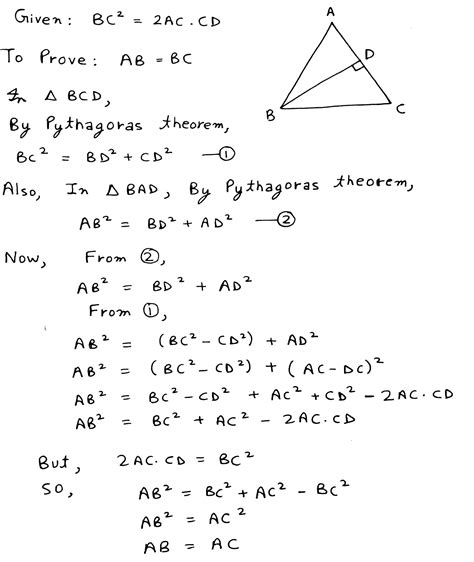 Given: BC² = 2AC·CD
To Prove: AB = BC
In △ BCD,
By Pythagoras theorem,
BC² = BD² + CD² —①
Also, In △ BAD, By Pythagoras theorem,
AB² = BD² + AD² —②
Now, From ②,
AB² = BD² + AD²
From ①,
AB² = (BC² - CD²) + AD²
AB² = (BC² - CD²) + (AC - DC)²
AB² = BC² - CD² + AC² + CD² - 2AC·CD
AB² = BC² + AC² - 2AC·CD
But, 2AC·CD = BC²
SO, AB² = BC² + AC² - BC²
AB² = AC²
AB = AC
A
D
B
C